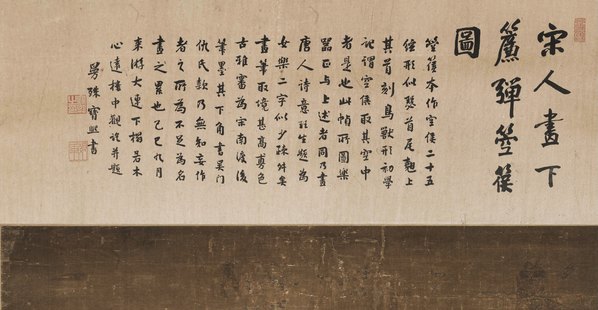 宋人畫下
簾彈箜篌
圖
箜篌本作空侯二十五
弦形似瑟首尾翹上
其首刻鳥獸形初學
記謂空侯取其空中
者是也此幀所圖樂
器正与上述者同乃畫
唐人詩意於生題為
女樂二字似少疎舛矣
畫筆取境甚高黃色
古雅審為宋南渡後
筆墨其下角書吴门
仇氏款乃無知妄作
者之所為不足為名
畫之累也乙巳九月
來游大連下榻君木
心遠樓中觀記并題
萬殊寶熙書